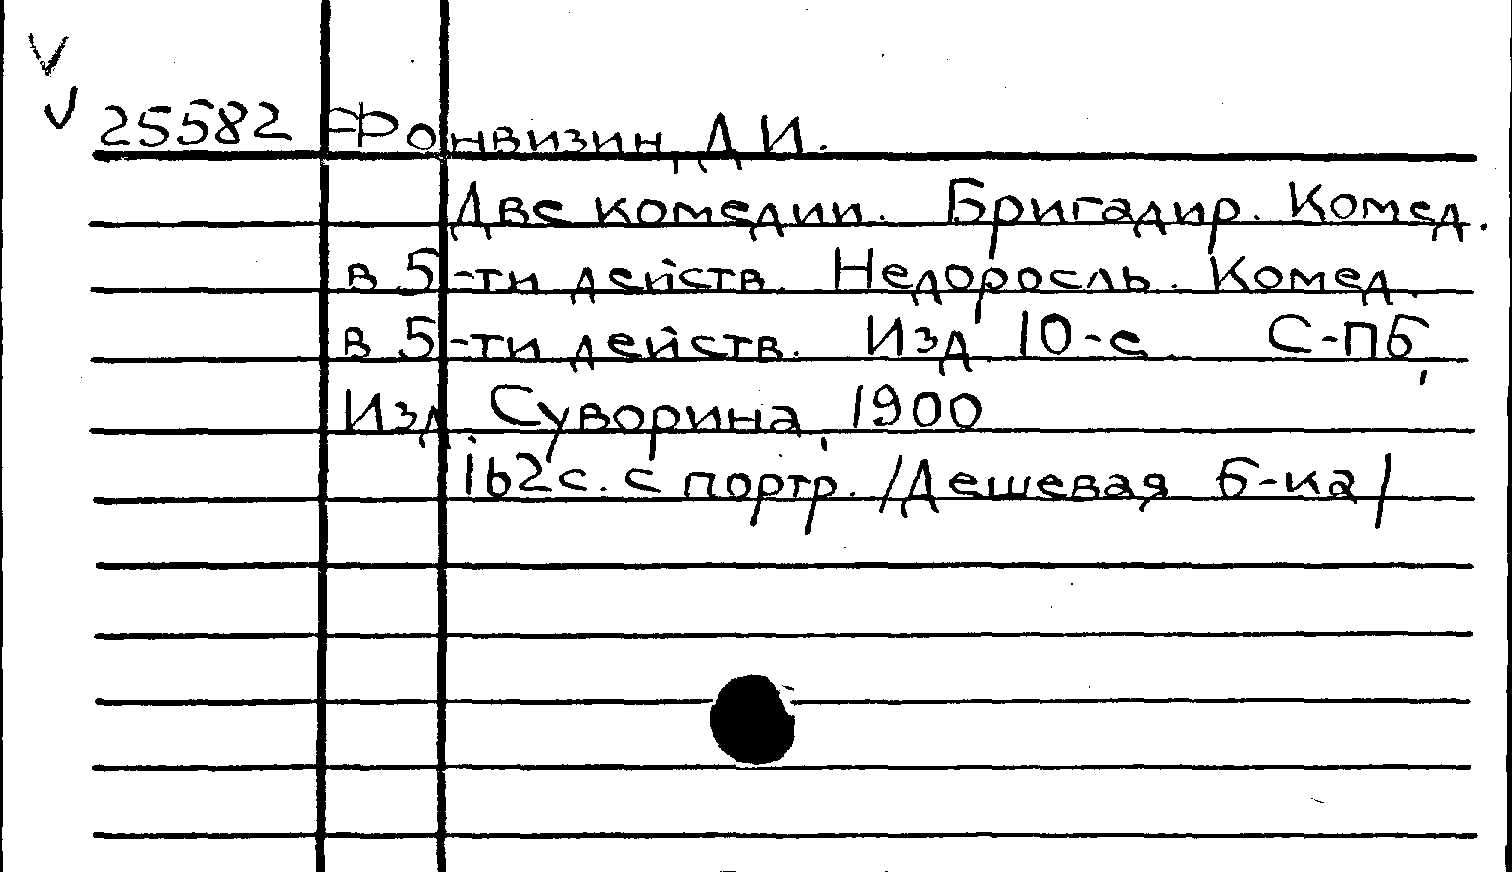 V
V 25582 Фонвизин, Д И.
Две комедии. Бригадир. Комед.
в 5-ти действ. Недоросль. Комед.
в 5-ти действ. Изд 10-е С-ПБ,
Изд. Суворина, 1900
162с. с портр. /Дешевая б-ка/